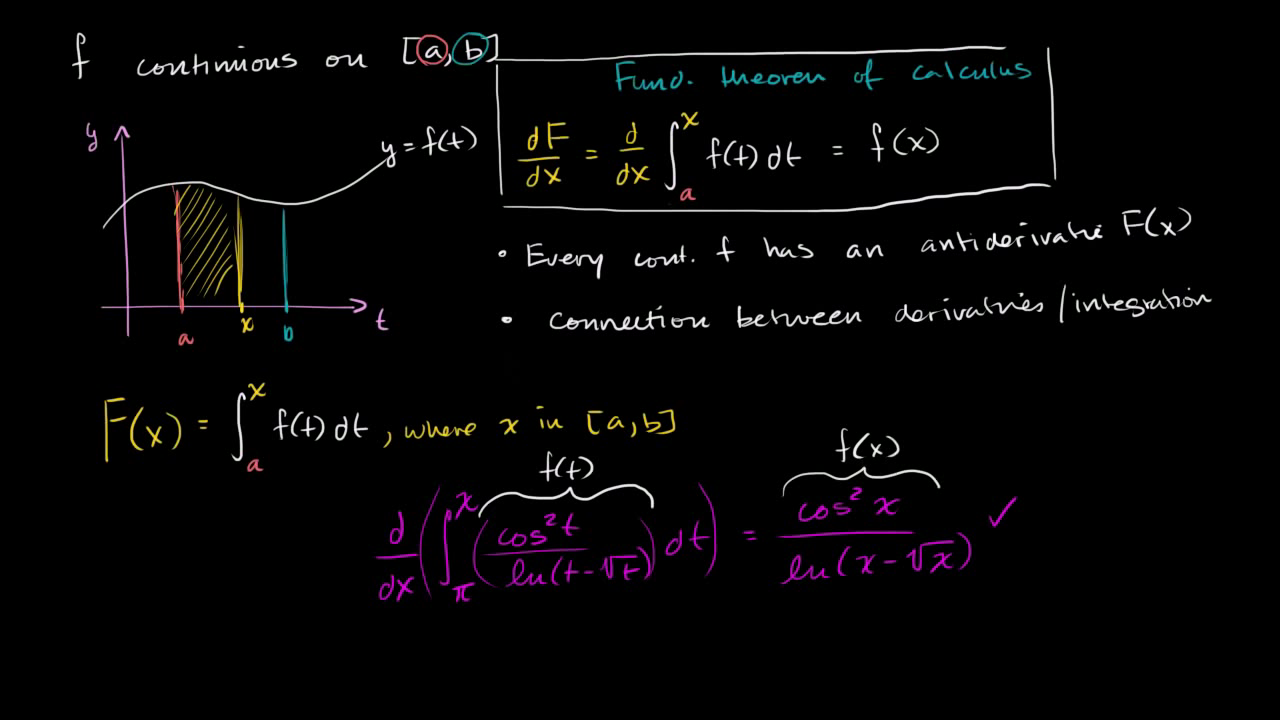 f continuous on [a, b]
Fund. theorem of calculus
dF/dx = d/dx ∫_a^x f(t) dt = f(x)
y
y = f(t)
a
x
b
t
• Every cont. f has an antiderivative F(x)
• connection between derivatives/integration
F(x) = ∫_a^x f(t) dt, where x in [a, b]
f(t)
f(x)
d/dx (∫_π^x (cos²t / ln(t-√t)) dt) = cos²x / ln(x-√x) ✓